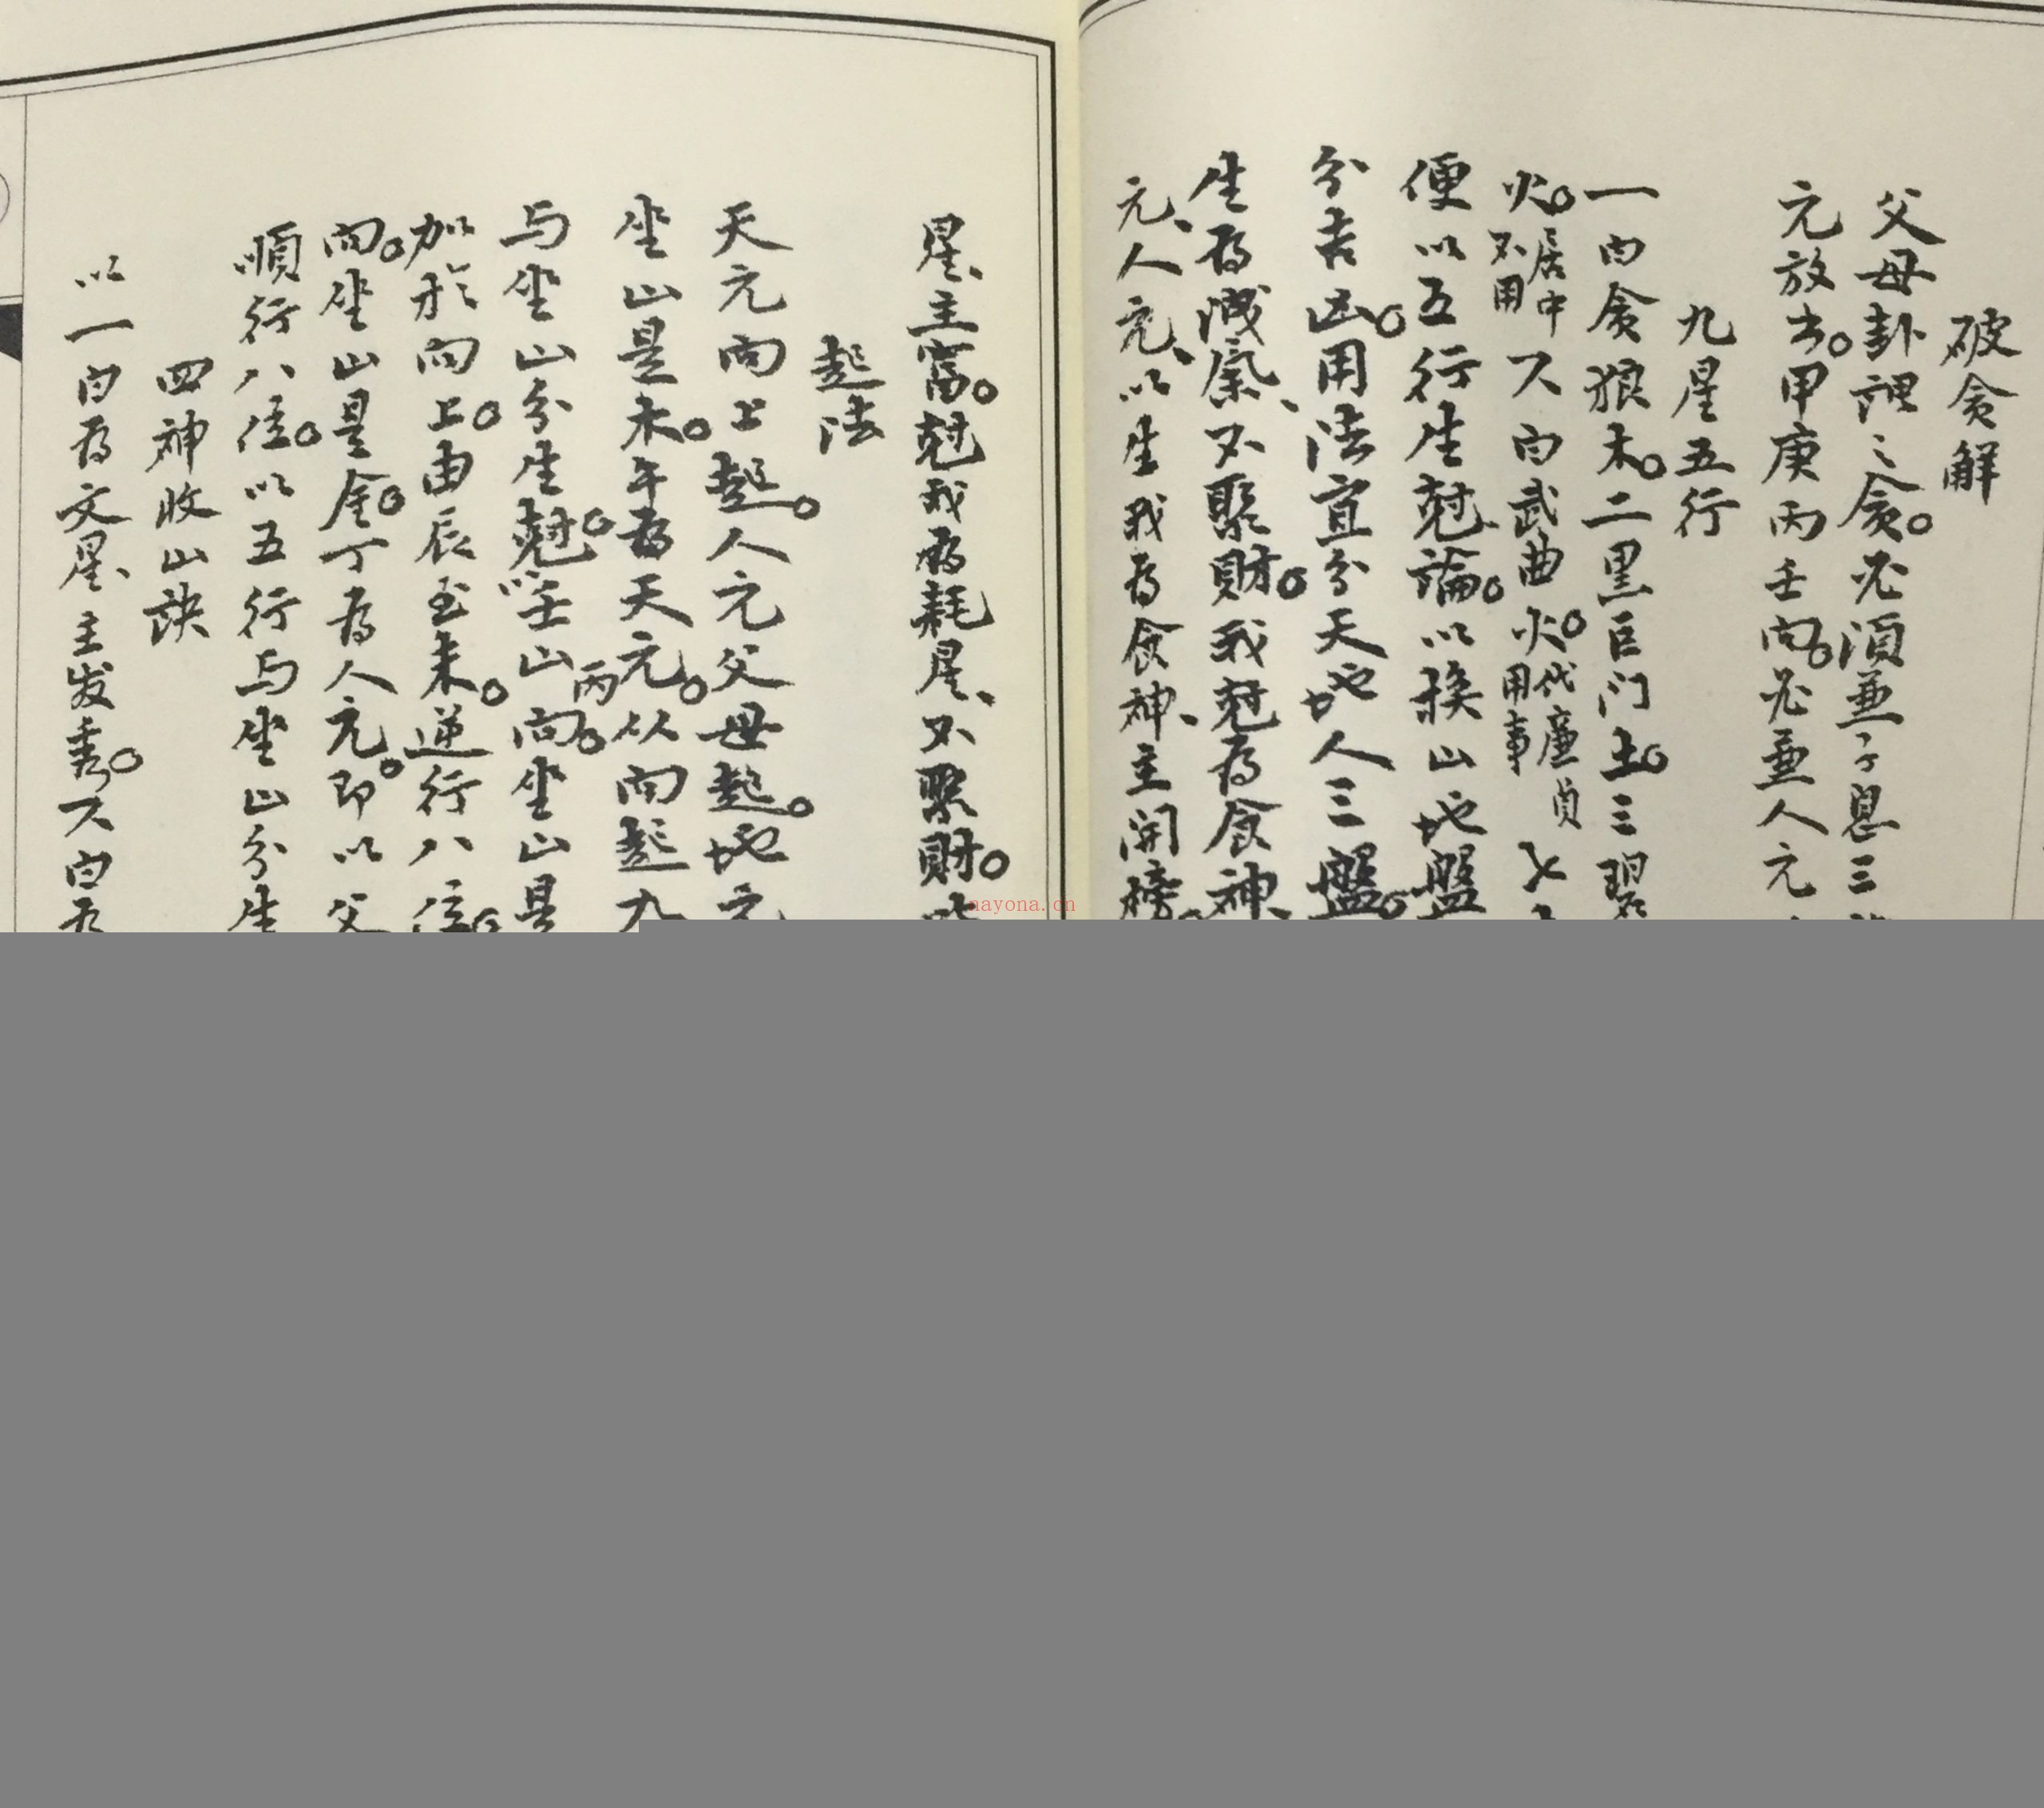 破贪解
父母卦謂之贪。必須兼子息三
元放出。甲庚丙壬向。必兼人元
九星五行
一白贪狼木。二黑巨门土。三碧
火。居中不用 六白武曲火。代廉贞用事 七
便以五行生尅論。以挨山地盤
分吉凶。用法宜分天地人三盤。
生为减氣、不聚财。我尅为食神、
元、人元、以生我为食神、主開榜
星、主富。尅我为耗星、不聚财。
起法
天元向上起。人元父母起。地元
坐山是木。午为天元。从向起九
与坐山分生尅。如壬山丙向。坐山是
加於向上。由辰至未。逆行八位。
向。坐山是金。丁为人元。即以父
順行八位。以五行与坐山分生
四神收山訣
以一白为文星、主发秀。六白为
nayona.cn